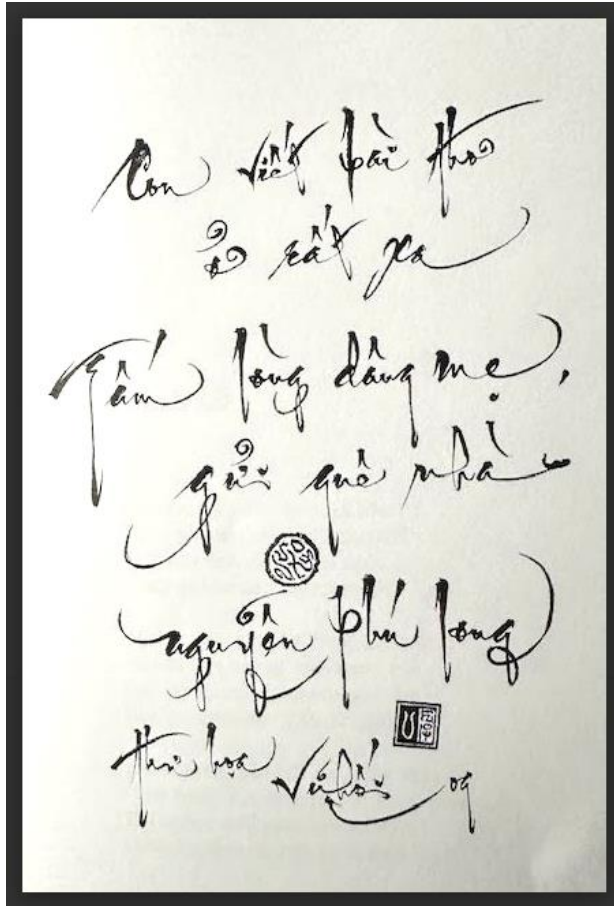 Con viết bài thơ
ở rất xa
Tấm lòng dâng mẹ,
gửi quê nhà
nguyễn phú long
thư họa Vũ Hối 09